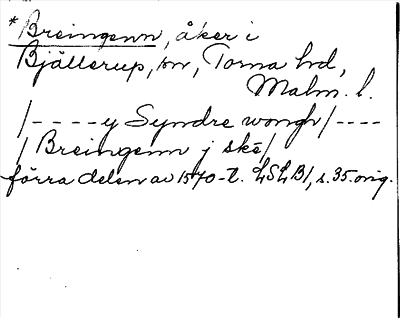 *Breingenn, åker i
Bjällerup, sn, Torna hrd,
Malm. l.
/----y Syndre wongh/----
/ Breingenn j skē/
förra delen av 1570-t. LSLB1, s. 35. orig.